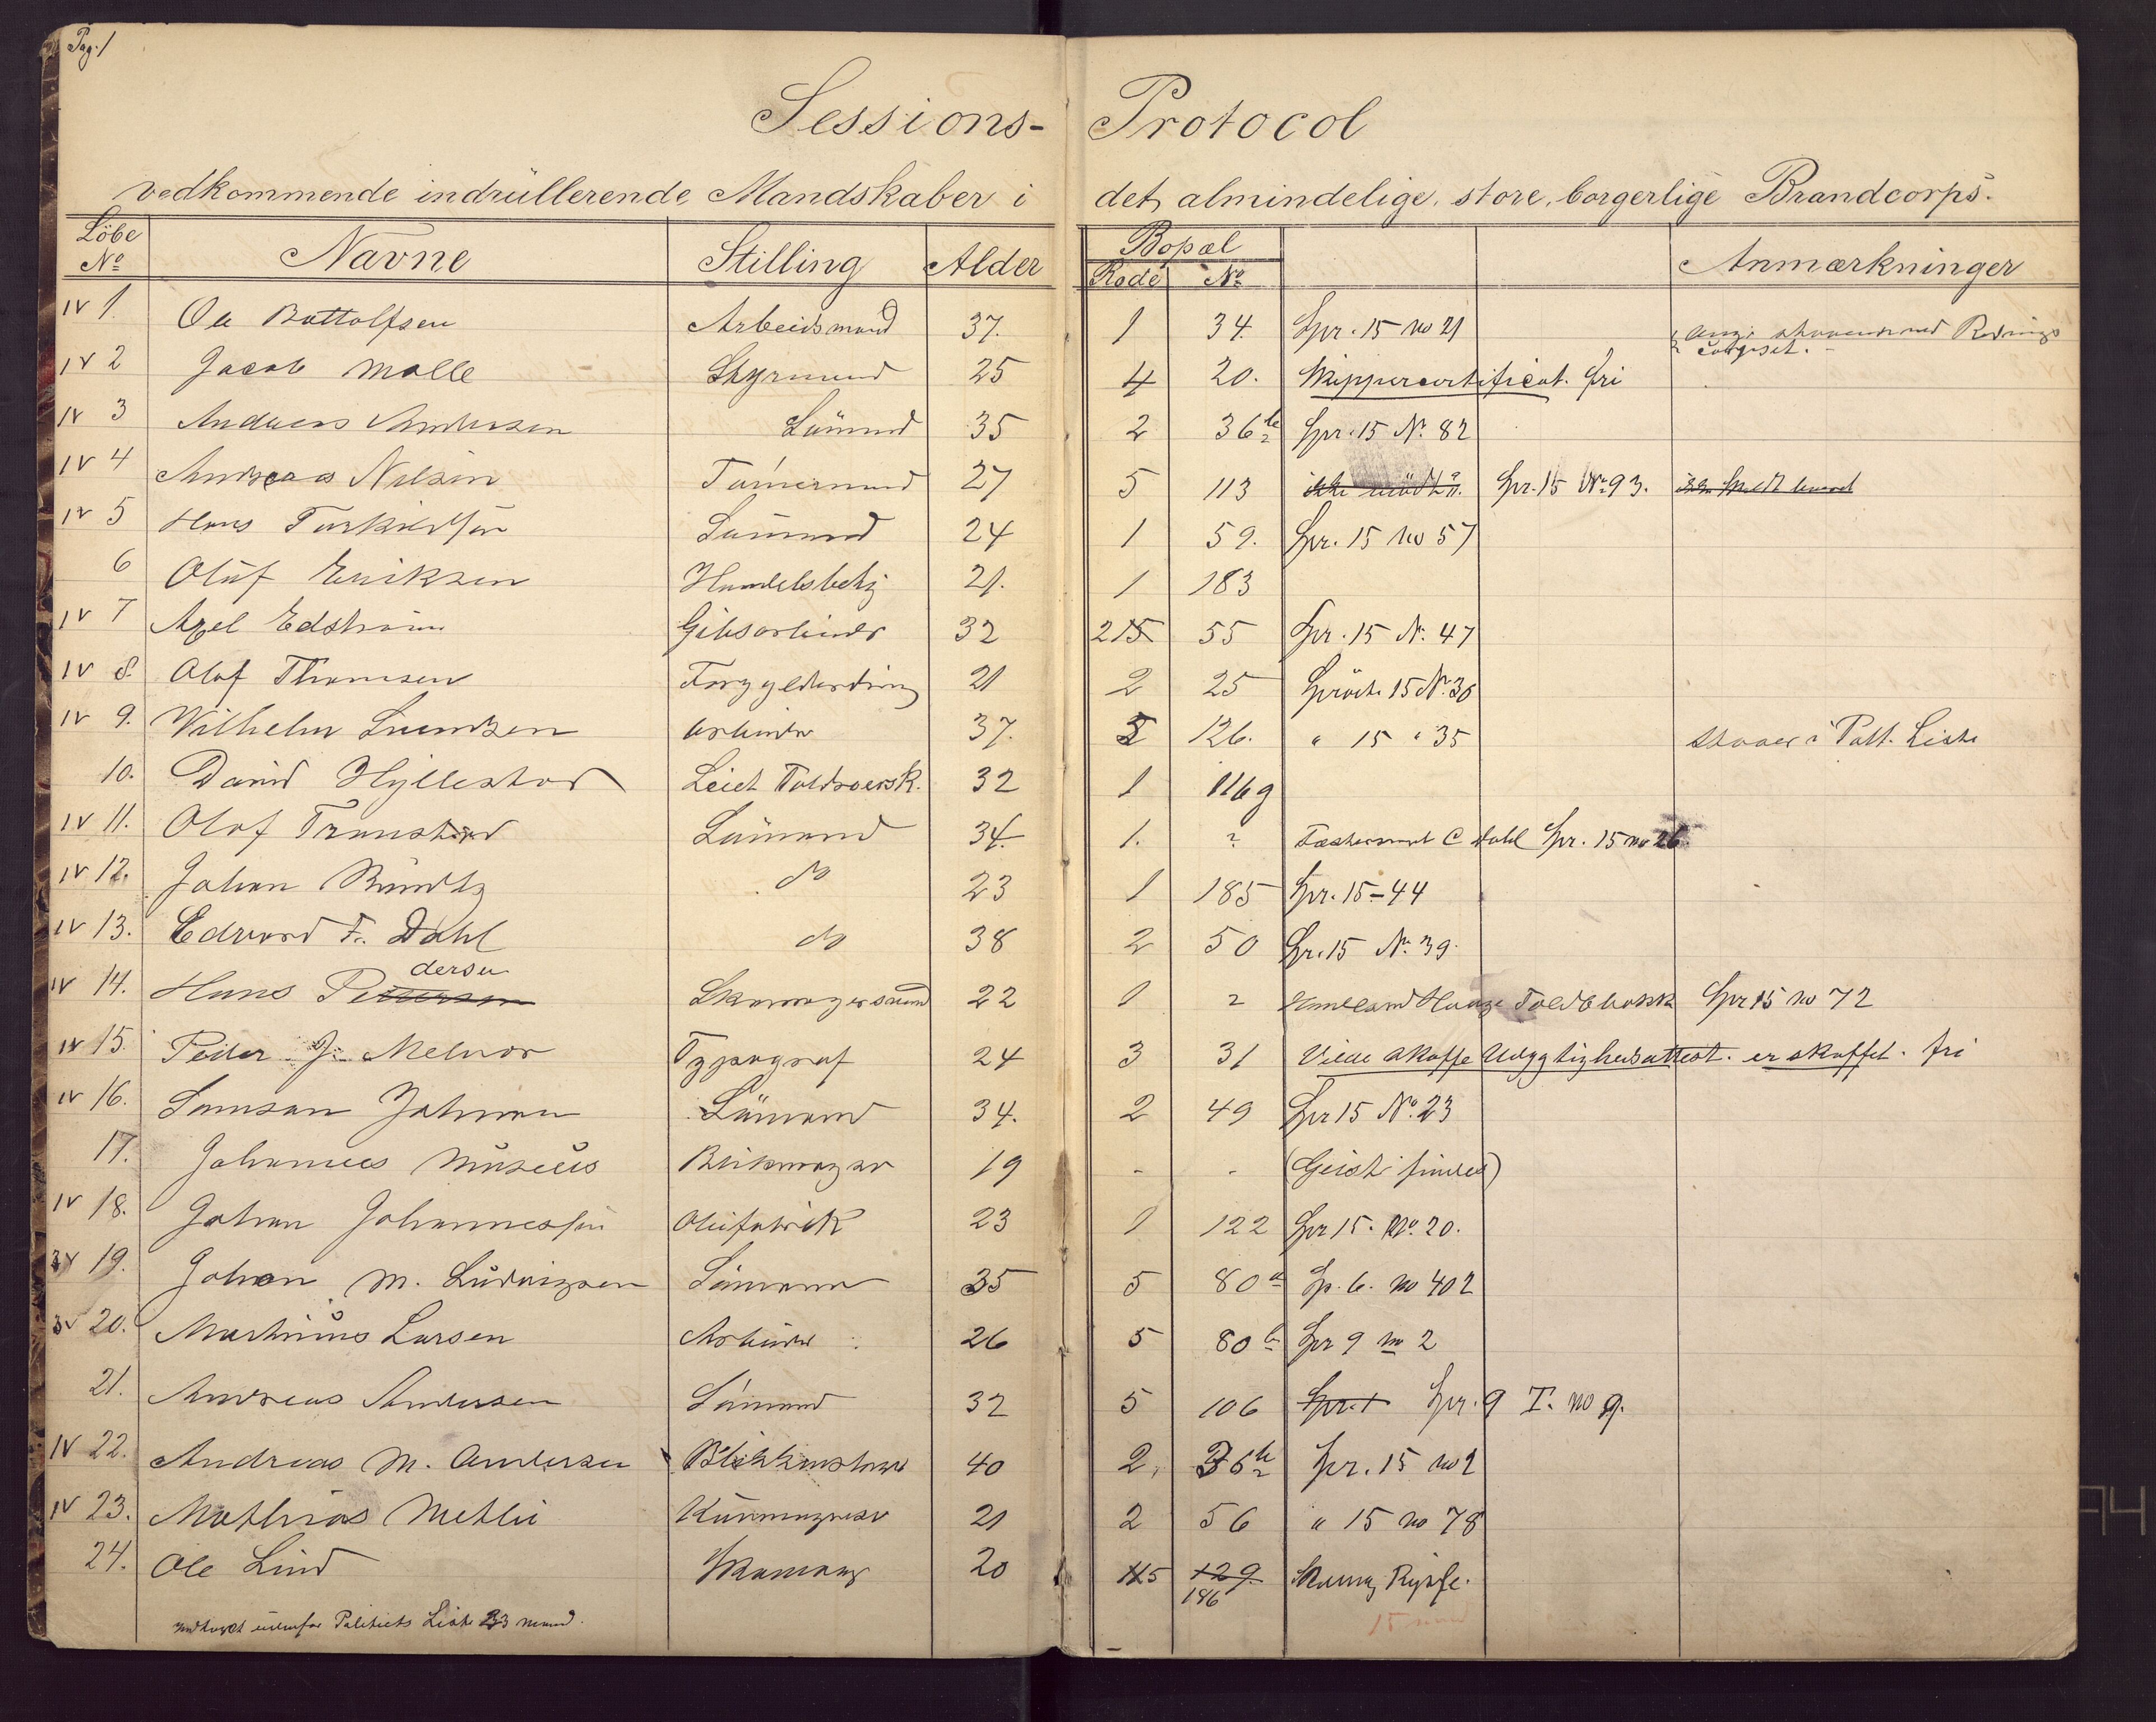 Pag. 1
Sessions- Protocol
vedkommende indrüllerende Mandskaber i det almindelige, store, borgerlige Brandcorps.
Löbe No Navne Stilling Alder Bopæl Rode No Anmærkninger
IV 1. Ole Bottolfsen Arbeidsmand 37. 1 34. Spr. 15 No 21
IV 2 Jacob Molle Styrmand 25 4 20. Skippercertificat. fri
IV 3 Andreas Andersen Sömand 35 2 36 b Spr. 15 No. 82
IV 4 Andreas Nilsen Tömermand 27 5 113 ikke mödt Spr. 15 No. 93.
IV 5 Hans Torkildsen Sömand 24 1 59. Spr. 15 No 57
6 Oluf Eriksen Handelsbetj 21. 1 183
IV 7 Axel Edström Gibsarbeider 32 2 15 55 Spr. 15 N. 47
IV 8. Olaf Thomsen Forgylderdreng 21 2 25 Spröite 15 No. 36
IV 9. Wilhelm Arbeider 37. 5 126. " 15 " 35 Staaer i Polt. Liste
10. David Hyllestad 32 1 116 g
IV 11. Olof Sömand 34. 1. ? C Dahl Spr. 15 no 26
IV 12. Johan do 23 1 185 Spr. 15 - 44
IV 13. Edvard F. Dahl do 38 2 50 Spr. 15 No. 39.
IV 14. Hans Pettersen dersen Skomagersvend 22 1 ? Spr 15 No 72
IV 15. Peder J. Melvor Typograf 24 3 31 Vilde skaffe Udygtighedsattest. er skaffet. fri
IV 16. Samson Johnsen Sömand 34. 2 49 Spr 15 No. 23
17. Johannes Müseüs Blikmager 19 - - (Geist findes)
IV 18. Johan Johannessen Oliefabrik 23 1 122 Spr 15. No. 20.
3V 19. Johan M. Ludvigsen Sömand 35 5 80 a Sp. 6. No 402
3V 20. Martinius Larsen Arbeider 26 5 80 b Spr 9 no 2
21. Andreas Andersen Sömand 32 5 106 Spr. 1 Spr. 9 I. No 9.
IV 22. Andreas M. Andersen 40 2, 36 b Spr. 15 no 1
IV 23. Mathias Methli Kürvmager 21 2 56 " 15 no 78
24. Ole Lind Skomag 20 5 129. 186
Politiets Liste 23 mand.
15 mand